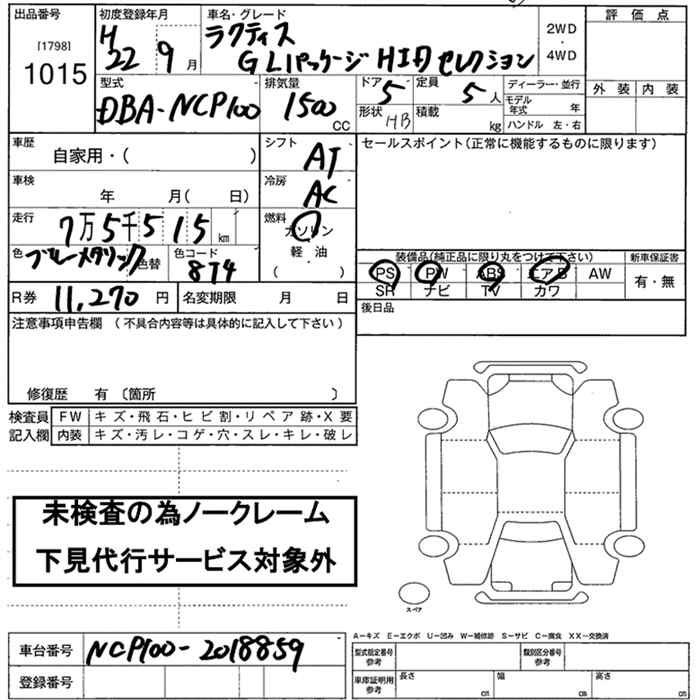 出品番号 初度登録年月 車名・グレード 評価点
[1798] H ラクティス 2WD
1015 22 9月 G Lパッケージ HIDセレクション ・ 4WD
型式 排気量 ドア 5 定員 5人 ディーラー・並行 外装 内装
DBA-NCP100 1500 CC 形状 HB 積載 kg モデル年式 年
ハンドル 左・右
車歴 シフト セールスポイント(正常に機能するものに限ります)
自家用・( ) AT
車検 冷房
年 月( 日) AC
走行 7万5千515km 燃料
ガソリン
色 ブルーメタリック 色替 色コード 8T4 軽・油
( )
装備品(純正品に限り丸をつけて下さい) 新車保証書
PS PW ABS エアB AW 有・無
SR ナビ TV カワ
R券 11,270 円 名変期限 月 日 後日品
注意事項申告欄 (不具合内容等は具体的に記入して下さい)
修復歴 有 〔箇所 〕
検査員 FW キズ・飛石・ヒビ割・リペア跡・X要
記入欄 内装 キズ・汚レ・コゲ・穴・スレ・キレ・破レ
未検査の為ノークレーム
下見代行サービス対象外
スペア
A−キズ E−エクボ U−凹み W−補修跡 S−サビ C−腐食 XX−交換済
車台番号 NCP100-2018859 型式指定番号 参考 類別区分番号 参考
登録番号 車庫証明用 参考 長さ cm 幅 cm 高さ cm